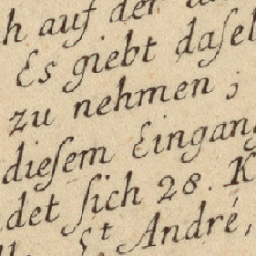 h auf der
Es giebt daſel
zu nehmen;
dieſem Eingang
det ſich 28. K
St André,